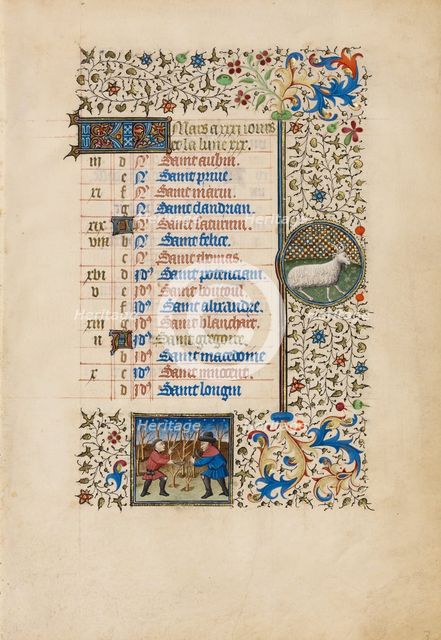 Mars a xxxi iours
et la lune xxx.
iii d N Saint aubin.
e N Saint priue.
xi f N Saint marin.
g N Saint dandrian.
xix A N Saint
viii b N Saint felice.
c N Saint thomas.
xvi d Id Saint potenciani.
v e Id Saint
f Id Saint alixandre.
xiii g Id Saint blanchart.
ii A Id Saint gregoire.
b Id Saint macedone
x c Id Saint innocent.
d Id Saint longin
Heritage
Heritage
Heritage
Heritage